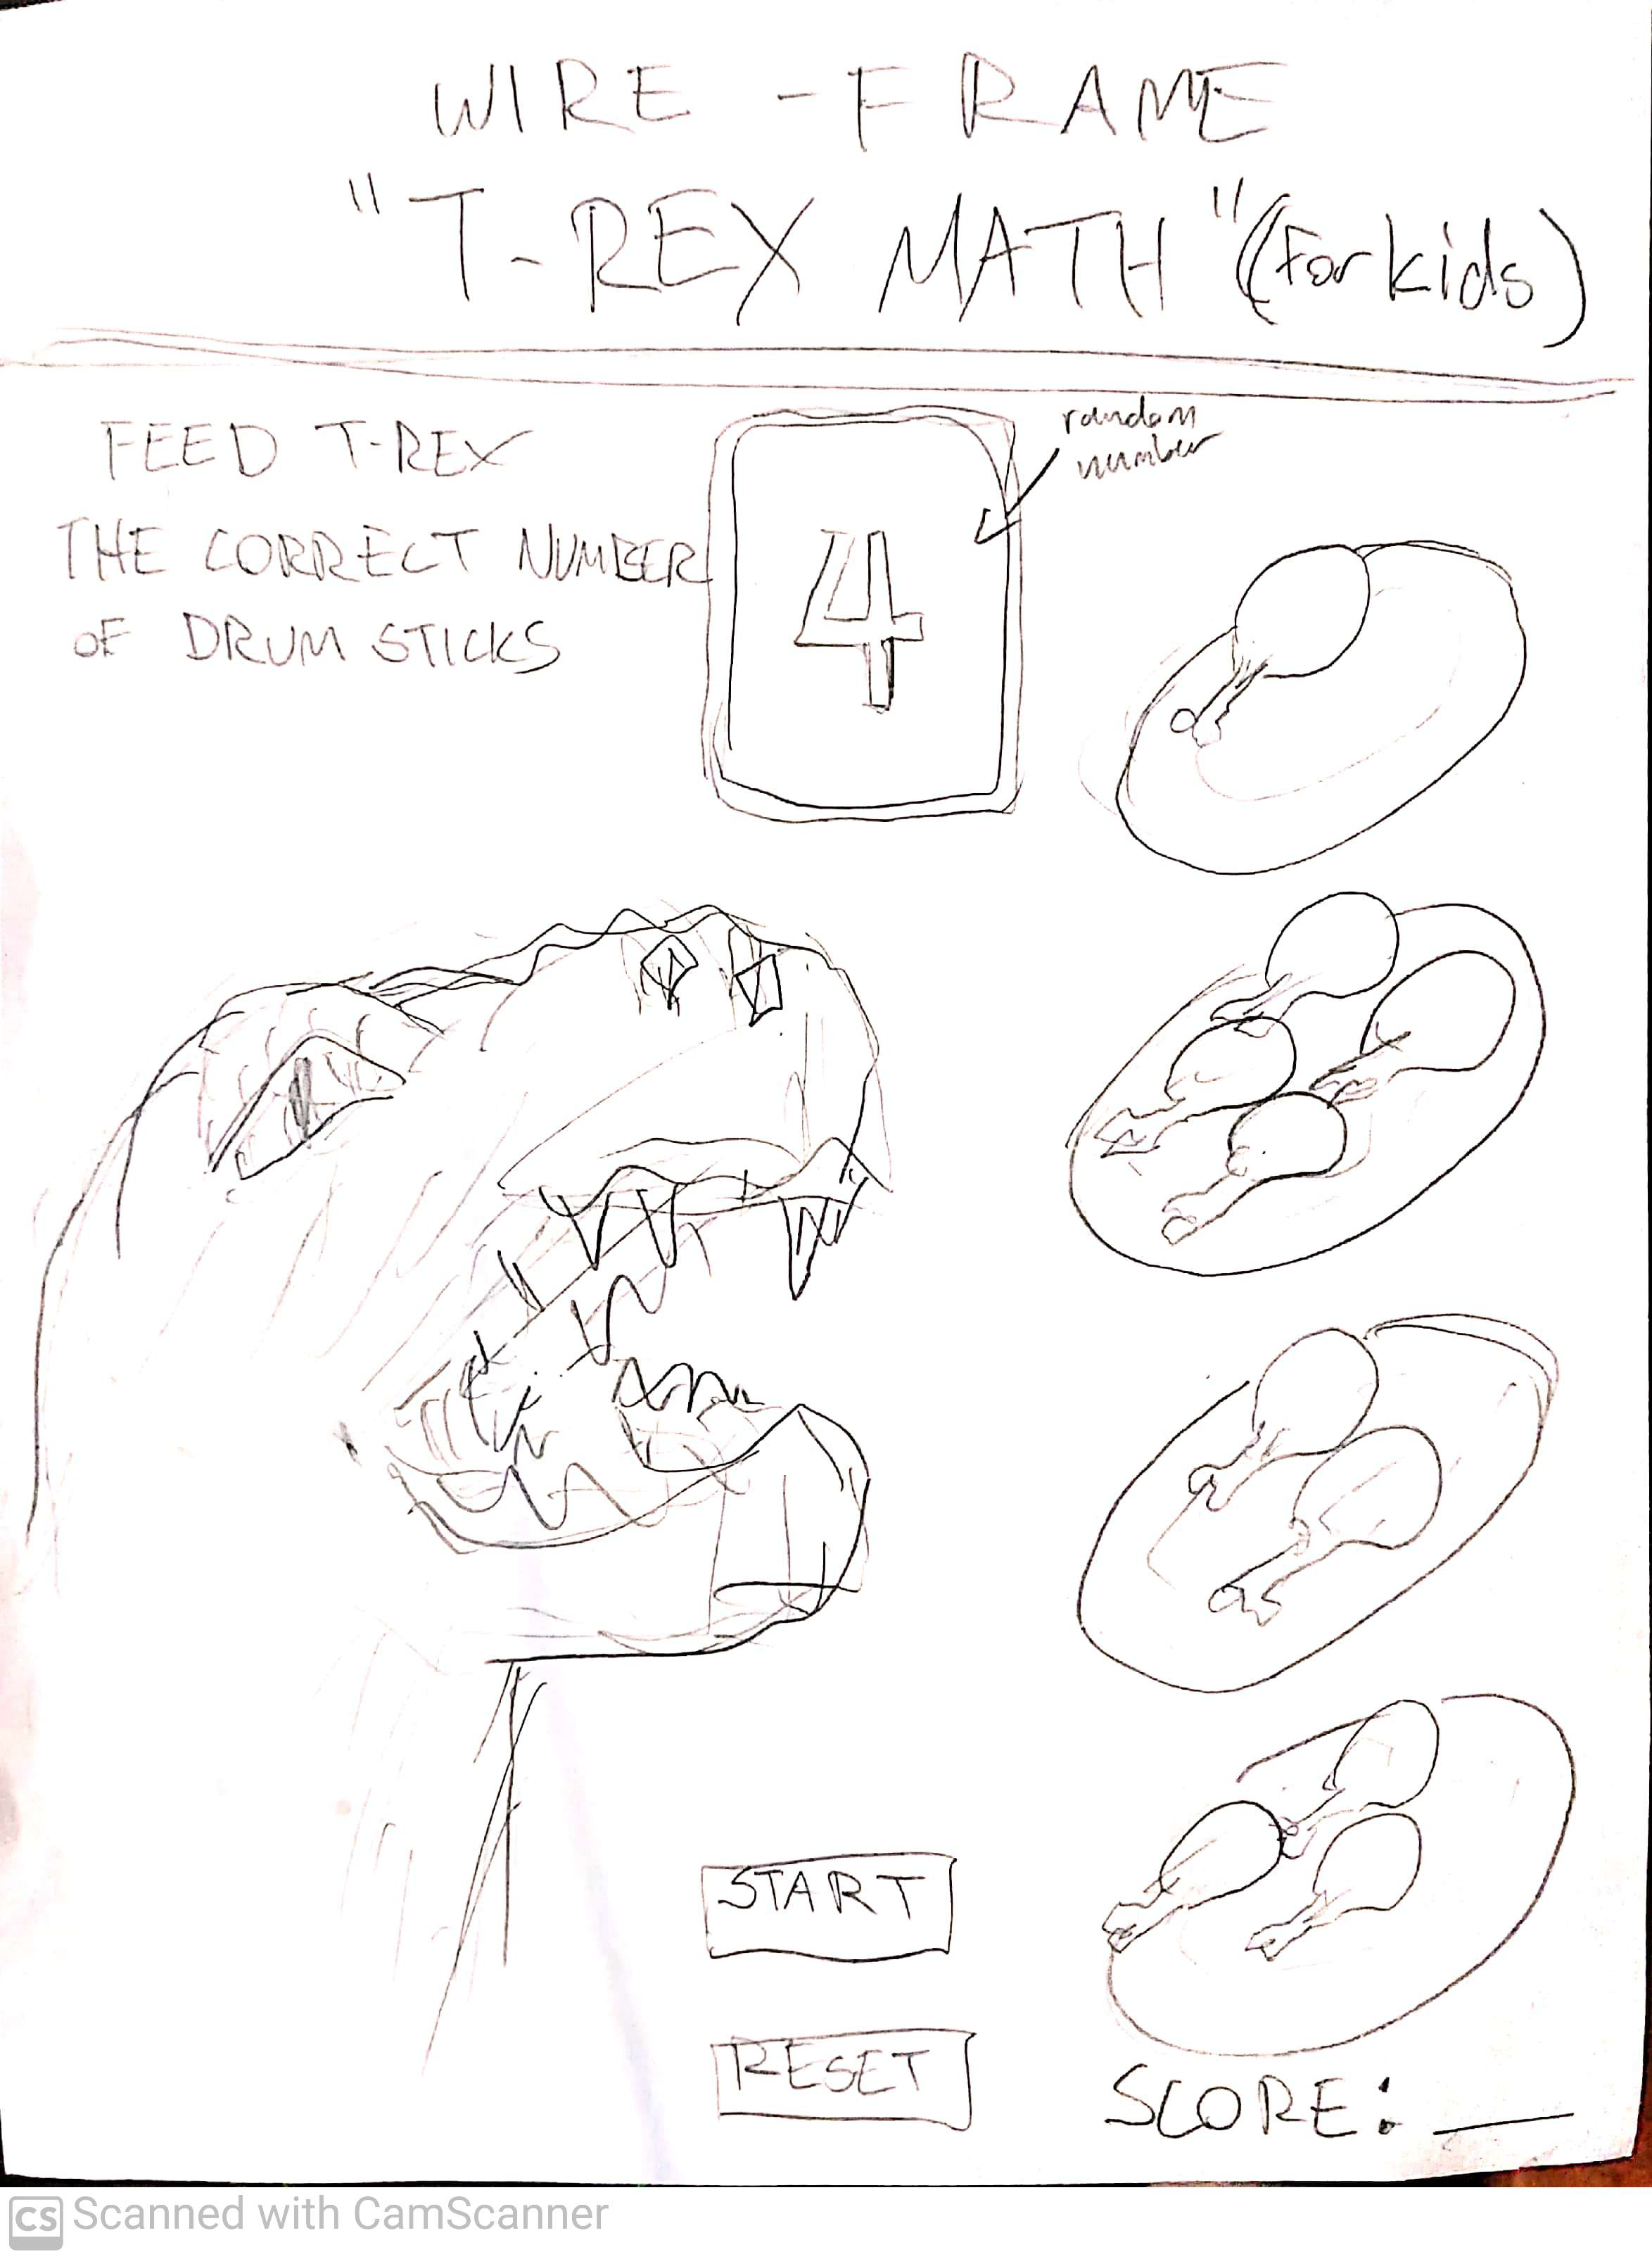 WIRE-FRAME
"T-REX MATH" (For kids)
FEED T-REX
THE CORRECT NUMBER
OF DRUM STICKS
random
number
4
START
RESET
SCORE: __
CS Scanned with CamScanner